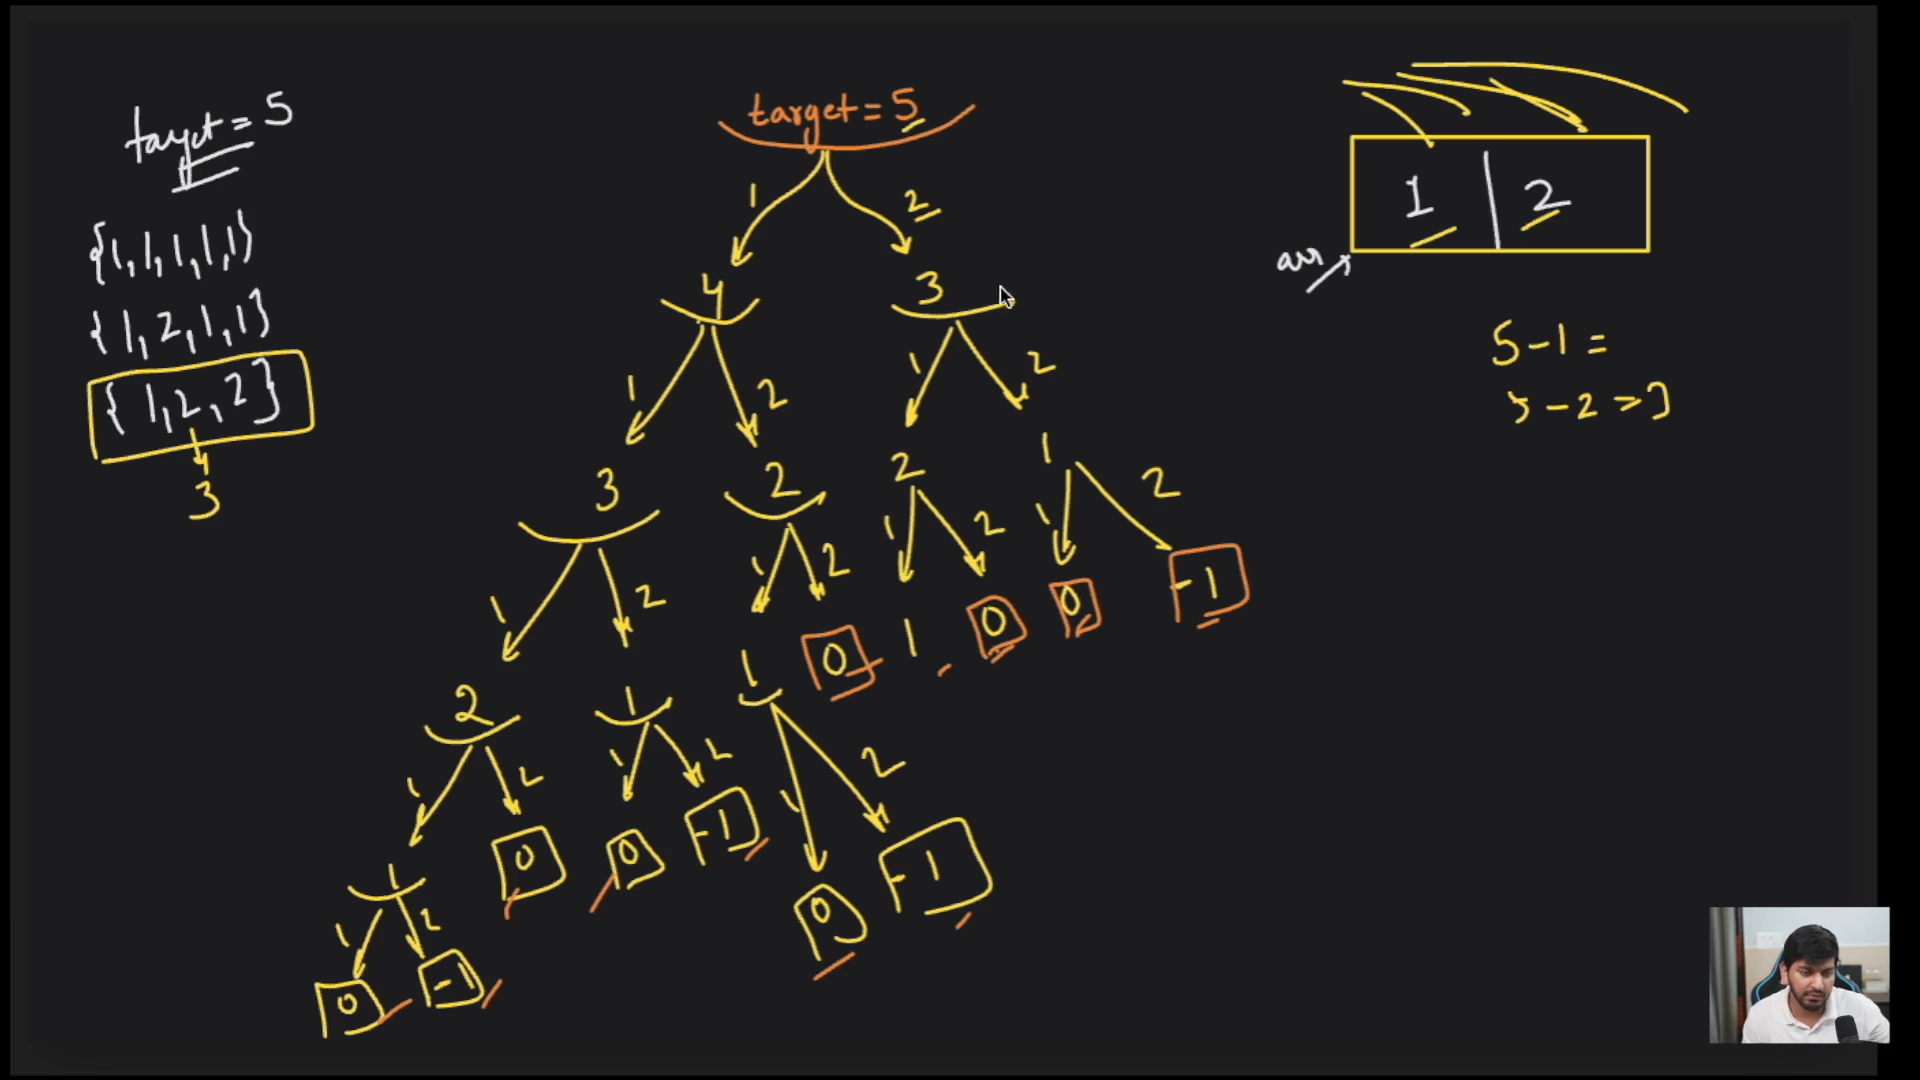 target = 5
{1,1,1,1,1}
{1,2,1,1}
{1,2,2}
3
target = 5
1 2
4 3
1 2 1 2
3 2 2 1
1 2 1 2 1 2 1 2
2 1 1 0 1 0 0 -1
1 2 1 2 1 2
1 0 0 -1 0 -1
1 2
0 -1
1 | 2
arr
5-1=
5-2=3